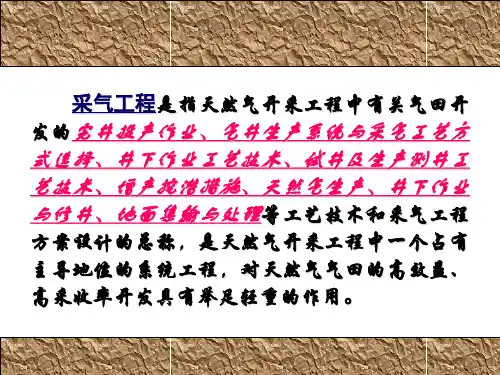 采气工程是指天然气开采工程中有关气田开
发的完井投产作业、气井生产系统与采气工艺方
式选择、井下作业工艺技术、试井及生产测井工
艺技术、增产挖潜措施、天然气生产、井下作业
与修井、地面集输与处理等工艺技术和采气工程
方案设计的总称，是天然气开采工程中一个占有
主导地位的系统工程，对天然气气田的高效益、
高采收率开发具有举足轻重的作用。